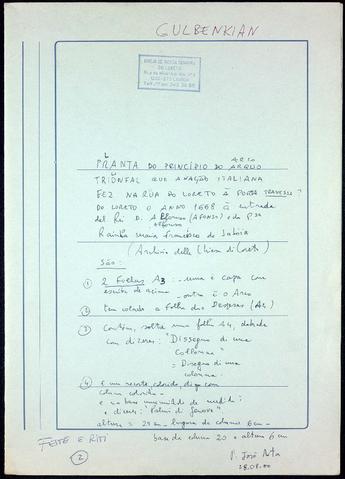 GULBENKIAN
IGREJA DE NOSSA SENHORA
DO LORETO
PLANTA DO PRINCIPIO DO ARCO
TRIUNFAL QUE A NAÇÃO ITALIANA
FEZ NA RUA DO LORETO À PORTA TRAVESSA
DO LORETO O ANNO 1668 À entrada
del Rei D. Affonso (AFONSO) e da
Rainha Maria Francisca de Saboia
(Archivio della Chiesa di Loreto)
São:
1 2 Folhas A3: uma é capa com
escrita de acima outra é o Arco
2 tem colado a Folha das Despesas (A4)
3 Contém, solta uma folha A4, dobrada
com dizeres: "Dissegno di una
Collonna"
= Disegno di una
colonna.
4 e um recorte colorido,
e na base uma unidade de medida
e dizeres: "Palmi di Genova"
altura = 25 cm largura de coluna 6 cm
base da coluna 20 altura 6 cm
FESTE E RITI
2
P. José
28.08.00